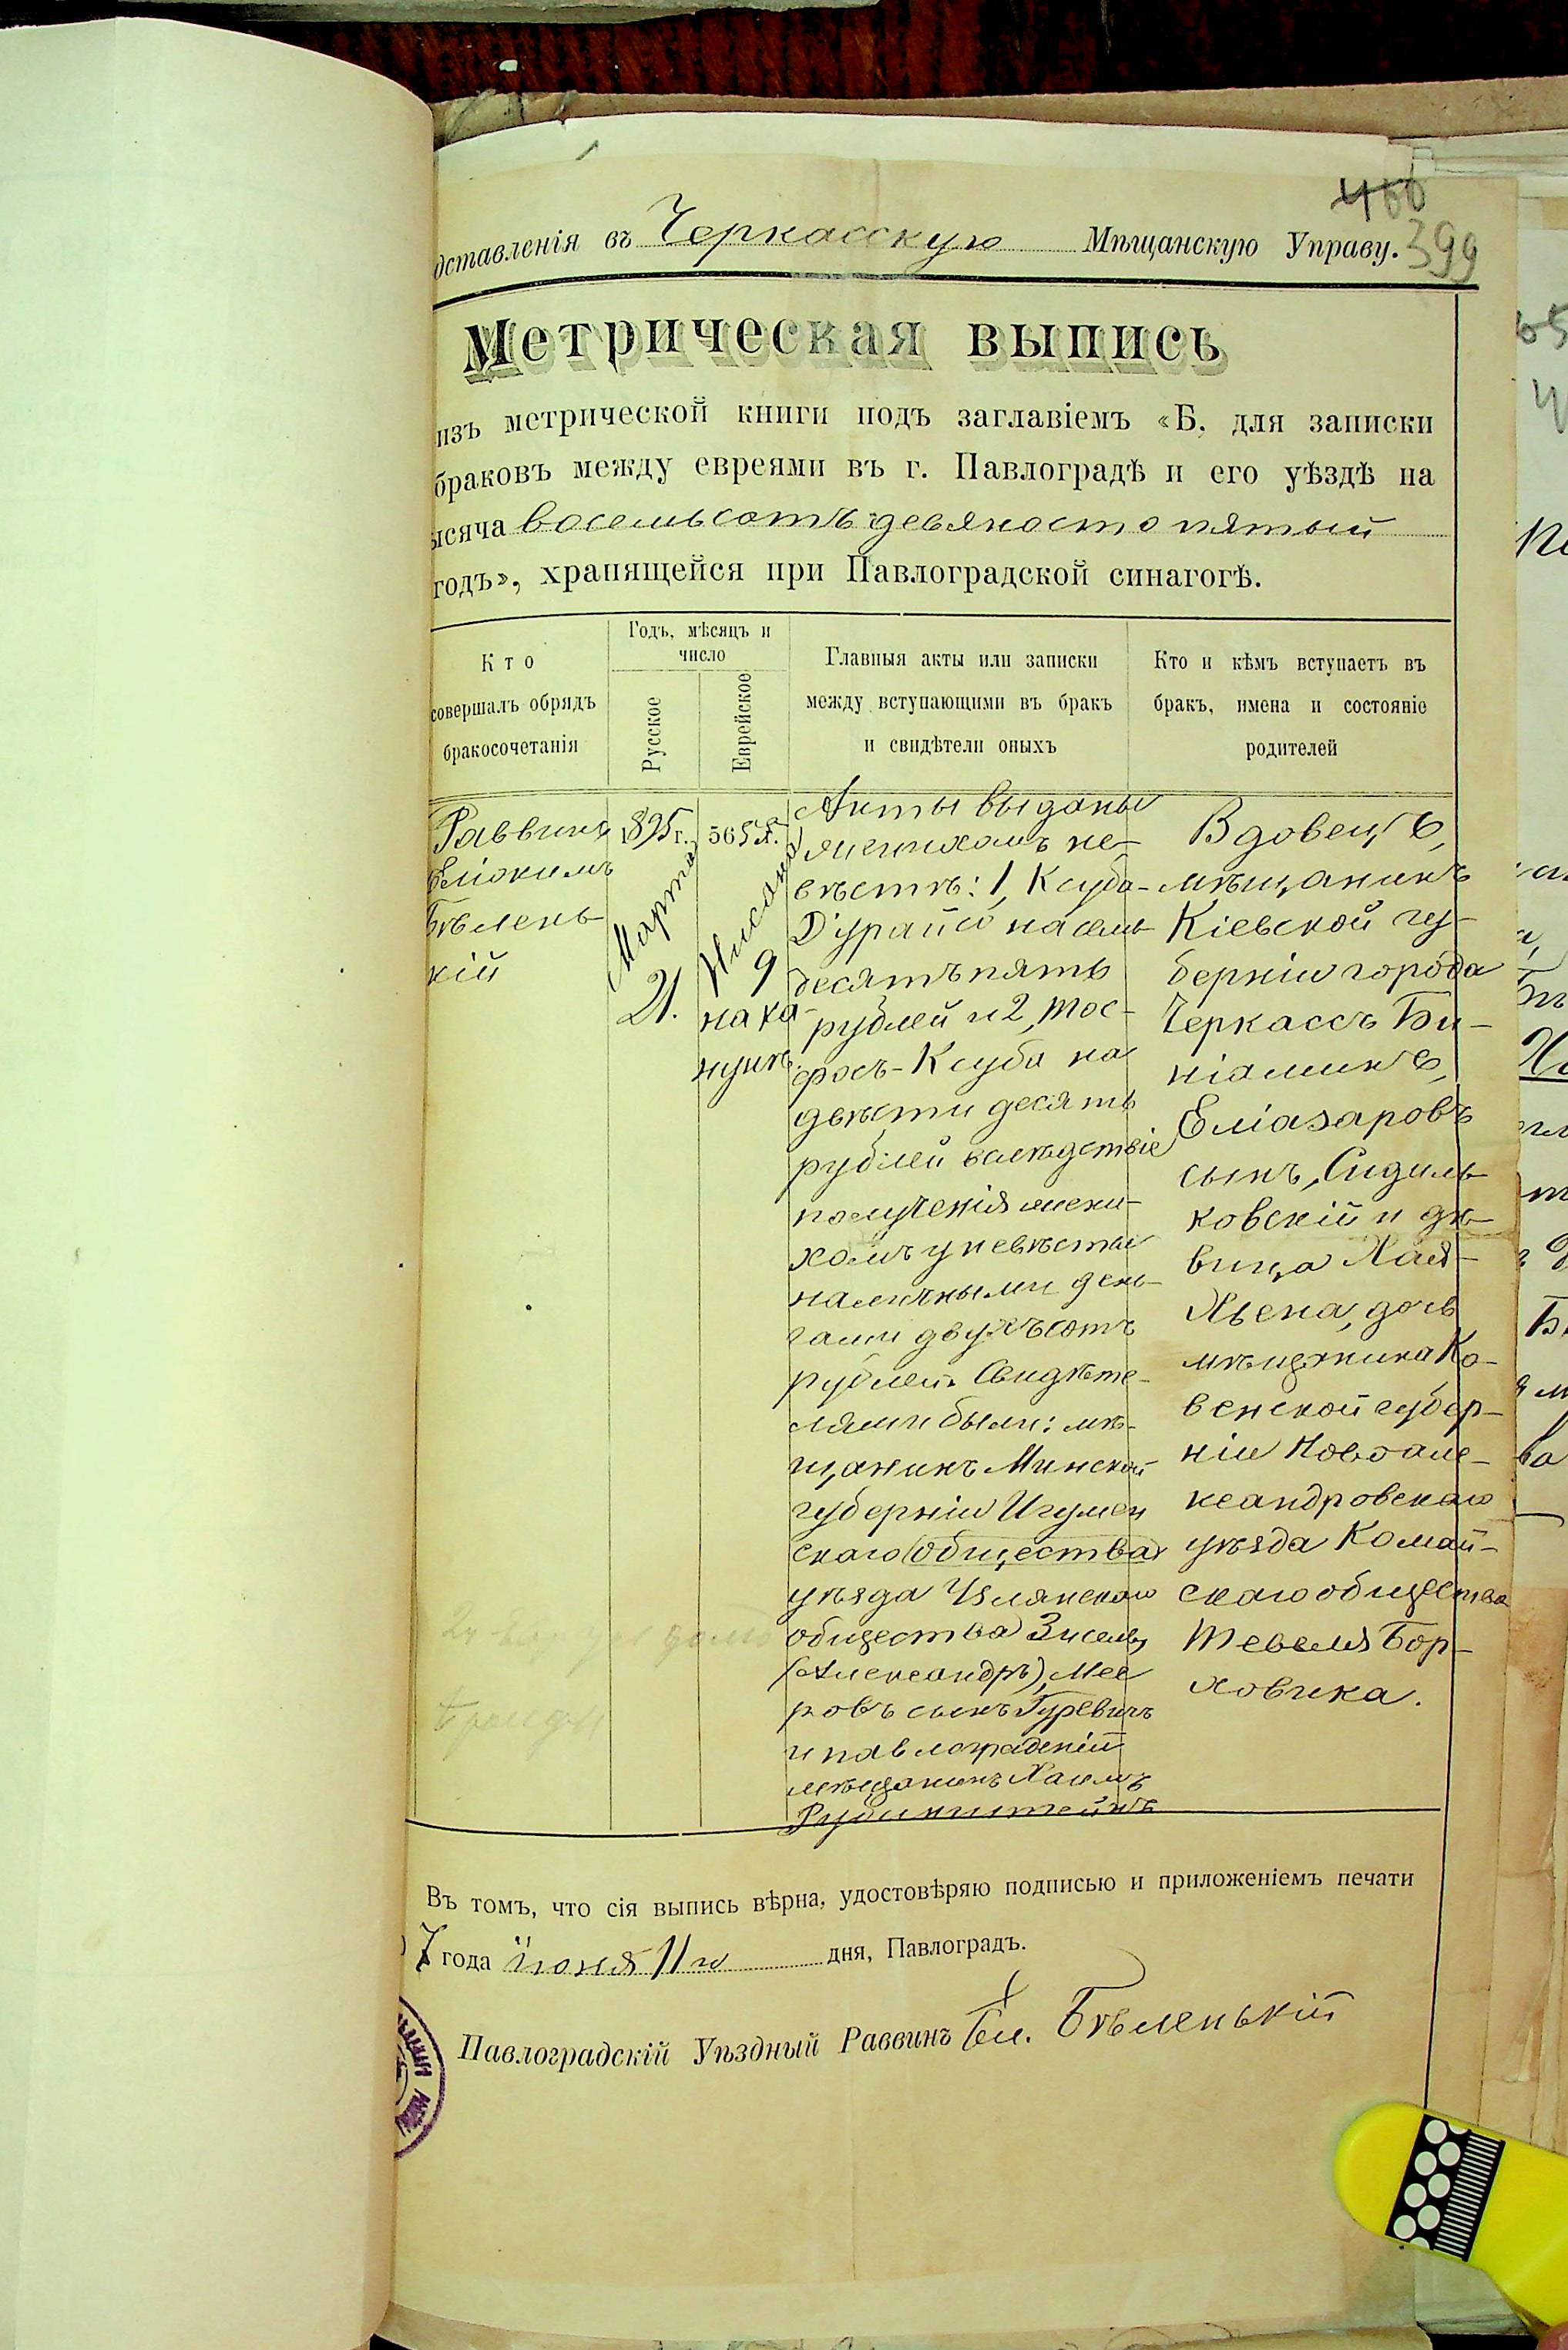 466
399
дставленія въ Черкасскую Мѣщанскую Управу.
Метрическая выпись
изъ метрической книги подъ заглавіемъ «Б. для записки
браковъ между евреями въ г. Павлоградѣ и его уѣздѣ на
ысяча восемьсотъ девяносто пятый
годъ», хранящейся при Павлоградской синагогѣ.
Кто
совершалъ обрядъ
бракосочетанія
Годъ, мѣсяцъ и
число
Русское
Еврейское
Главныя акты или записки
между вступающими въ бракъ
и свидѣтели оныхъ
Кто и кѣмъ вступаетъ въ
бракъ, имена и состояніе
родителей
Раввинъ
Еліокимъ
Бѣлень-
кій
1895 г.
Марта
21.
565
Нисана
9
нака-
нунѣ.
Акты выданы
женихомъ не-
вѣстѣ: 1, Ксуба-
Д'урайсо на семь-
десятъ пять
рублей и 2, Тос-
фосъ-Ксуба на
двѣсти десять
рублей вслѣдствіе
полученія жени-
хомъ у невѣсты
наличными день-
гами двухъсотъ
рублей. Свидѣте-
лями были: мѣ-
щанинъ Минской
губерніи Игумен
скаго (общества)
уѣзда Узлянскаго
общества Зисель
(Александръ), Мее
ровъ сынъ Гуревичъ
и павлоградскій
мѣщанинъ Хаимъ
Рубинштейнъ
Вдовецъ,
мѣщанинъ
Кіевской гу-
берніи города
Черкассъ Би-
ніаминъ,
Еліазаровъ
сынъ, Сидиль-
ковскій и дѣ-
вица Хая-
Хьена, дочь
мѣщанина Ко-
венской губер-
ніи Новоале-
ксандровскаго
уѣзда Комай-
скаго общества
Тевеля Бор-
ховика.
Въ томъ, что сія выпись вѣрна, удостовѣряю подписью и приложеніемъ печати
7 года іюня 11 го дня, Павлоградъ.
Павлоградскій Уѣздный Раввинъ Ел. Бѣленькій